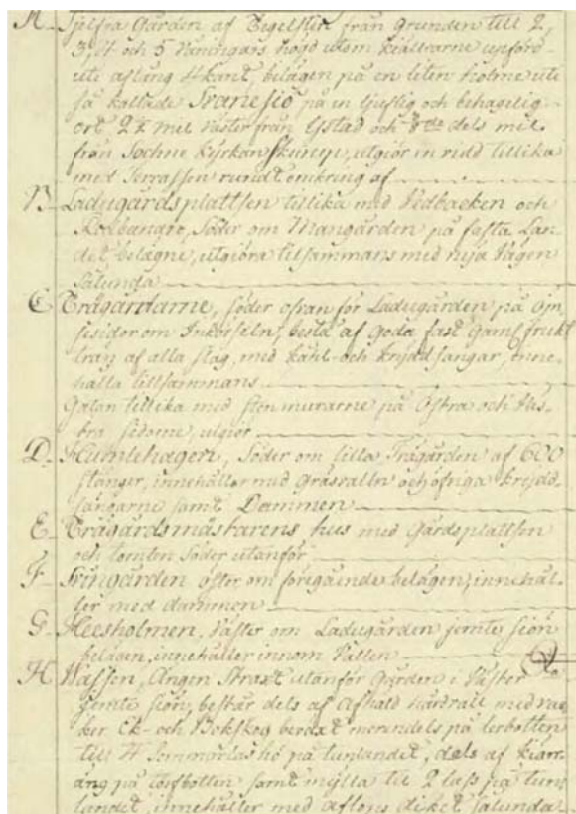 A. Sjelfva Gården af Tegelsten från grunden till 2,
3, 4 och 5 Våningars högd utom källrarne upförd
uti aflång 4kant, belägen på en liten holme uti
så kallade Svanesjö på en ljuflig och behagelig
ort 2½ mil Väster från Ystad och dels mil
från Sochne Kyrkan Skurup, utgiör in
med Terrassen rundt omkring af
B. Ladugårdsplattsen tillika med Vedbacken och
Söder om Mangården på fasta Lan-
det belägne, utgiöra tilsammans med nya Vägen
Salunda
C. Trägårdarne, söder ofvan för Ladugården på
sidor om Inkörseln, bestå af goda fast gaml frukt
träy af alla slag, med Kåhl- och Kryddsängar, inne-
hålla tillsammans
Gatan tillika med stenmurarne på Östra och Väs-
tra sidorne, utgiör
D. Humlehagen, Söder om lilla Trägården af 600
stänger, innehåller med gräsvallen och öfriga krydd-
sängarne samt Dammen
E. Trägårdsmästarens hus med Gårdsplattsen
och tomten Söder utanför
F. Svingården öster om föregående belägen, innehål-
ler med dammen
G. Heesholmen, Väster om Ladugården jemte siön
belägen, innehåller innom
H. Ängen Straxt utanför Gården i Väster
jemte siön, består dels af hårdvall med vac-
ker Ek- och Bokskog merendels på lerbotten
till 4 Sommarlass hö på tunlandet, dels af kiärr-
äng på torfbotten samt mylla til 2 lass på tun-
landet, innehåller med diket Salunda